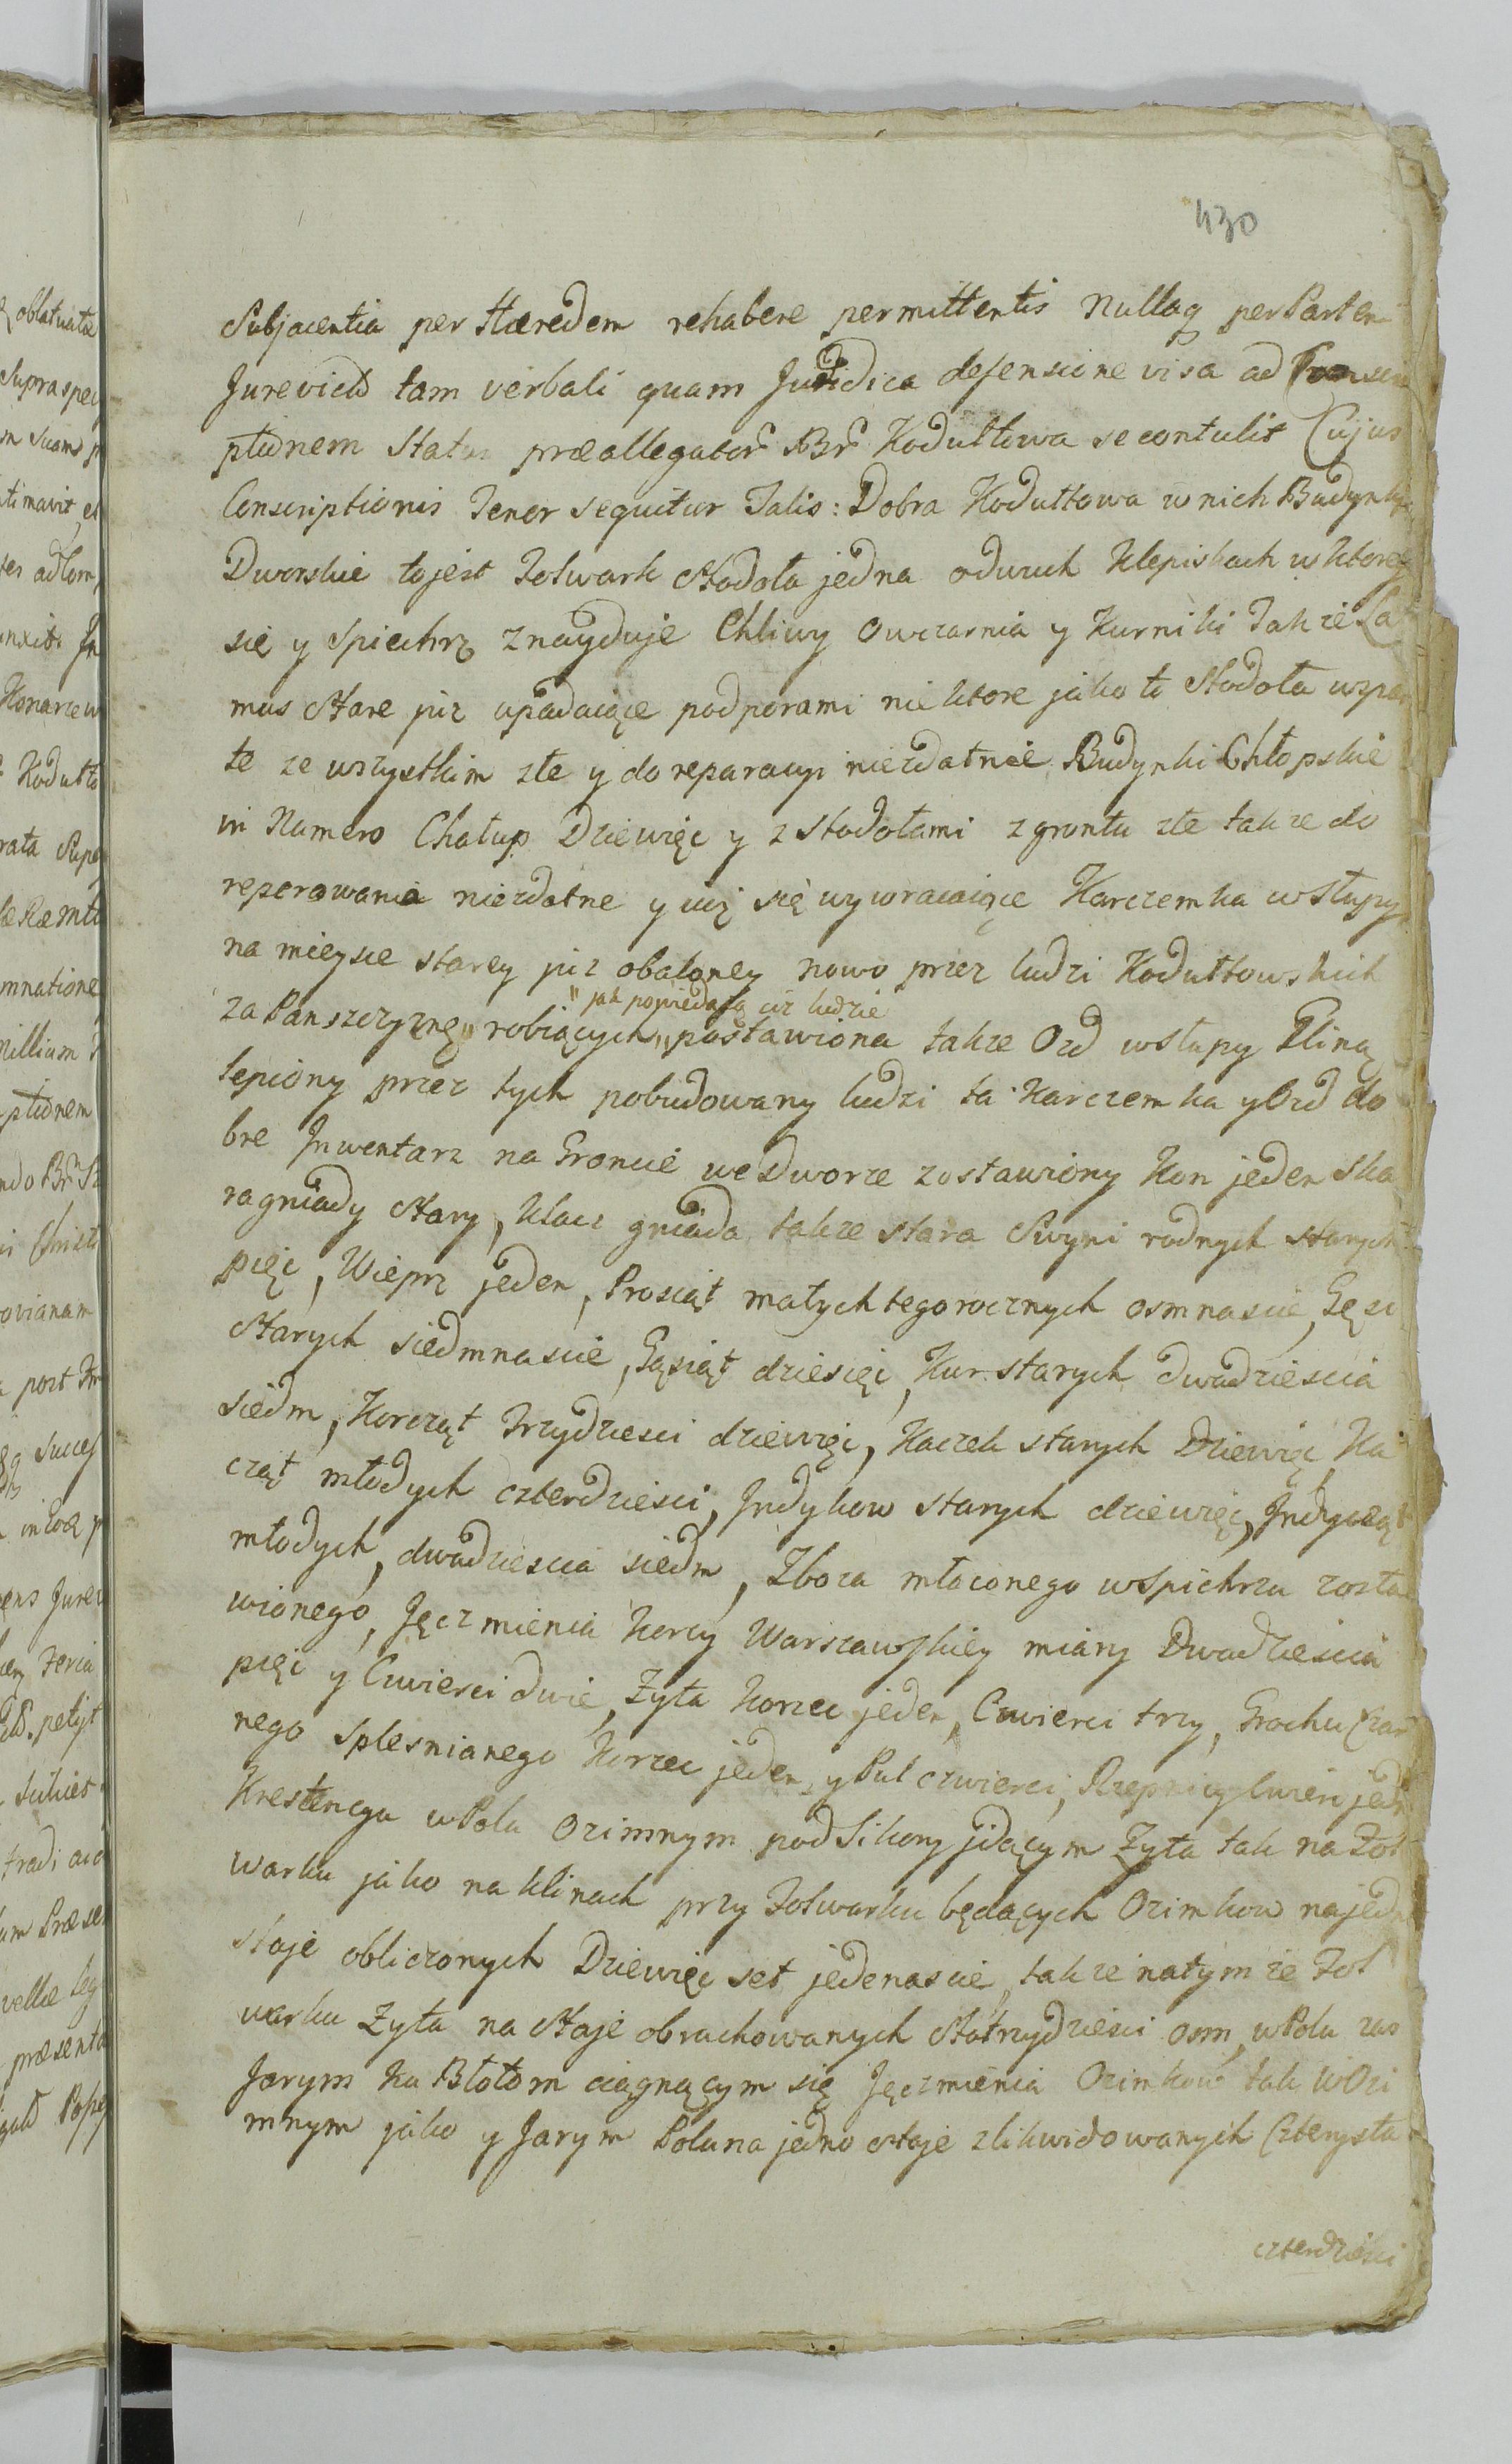 430
Subjacentia per Hæredem rehabere permittentis Nullaq perPartem
Jurevicid tam verbali quam Juridica defensione visa ad Conscri
ptidnem Status præallegator Br Kodułtowa se contulit Cujus
Conscriptionis Tenor sequitur Talis: Dobra Kodułtowa w nich Budynki
Dworskie tojest Folwark Stodoła jedna odwuch Klepiskach w ktorey
się y Spiechrz znayduje Chliwy Owczarnia y Kurniki Takze La
mus Stare juz upadaiące podporami niektore jako to Stodoła wspar
te ze wszystkim złe y do reparacyi niezdatne Budynki Chłopskie
in Numero Chałup Dziewięc y z stodołami z gruntu złe takze do
reperowania niezdatne y się wywracaiące Karczemka wSłupy
na mieysce starey juz obaloney nowo przez ludzi Kodułtowskich
"jak powiedaią ciz ludzie
za Panszczyznę robiących " postawiona takze Ozd wsłupy Gliną
lepiony przez tych pobudowany ludzi ta Karczemka y Ozd do
bre Jnwentarz na Groncie we Dworze zostawiony Kon jeden Ska
ragniady Stary, Klacz gniada takze stara Swyni rodnych starych
pięc, Wieprz jeden, Prosiąt małych tegorocznych osmnascie, Gęsi
Starych siedmnascie, Gąsiąt dziesięc, Kur starych dwadziescia
siedm, Korcząt Trzydziesci dziewięc, Kaczek starych Dziewięc Ka
cząt młodych czterdziesci, Jndykow starych dziewięc, Jndycząt
młodych, dwadziescia siedm, Zboza młoconego wSpichrzu zosta
wionego, Jęczmienia Korcy Warszawskiey miary Dwadziescia
pięc y Cwierci dwie, Zyta Korzec jeden, Cwierci trzy, Grochu Czar
nego Splesnianego Korzec jeden, y Puł czwierci, Rzepnicy Cwierc jedn
Krestencya wPolu Ozimnym pod Sikory jidącym Zyta tak na Fol
warku jako na klinach przy Folwarku będących Ozimkow na jedn
staje obliczonych Dziewięc set jedenascie, takze natymze Fol
warku Zyta na Staje obrachowanych Stotrzydziesci osm, wPolu zas
Jarym ku Błotom ciągnącym się Jęczmienia Ozimkow tak wOzi
mnym jako y Jarym Poluna jedno staje zlikwidowanych Czterysta
czterdziesci